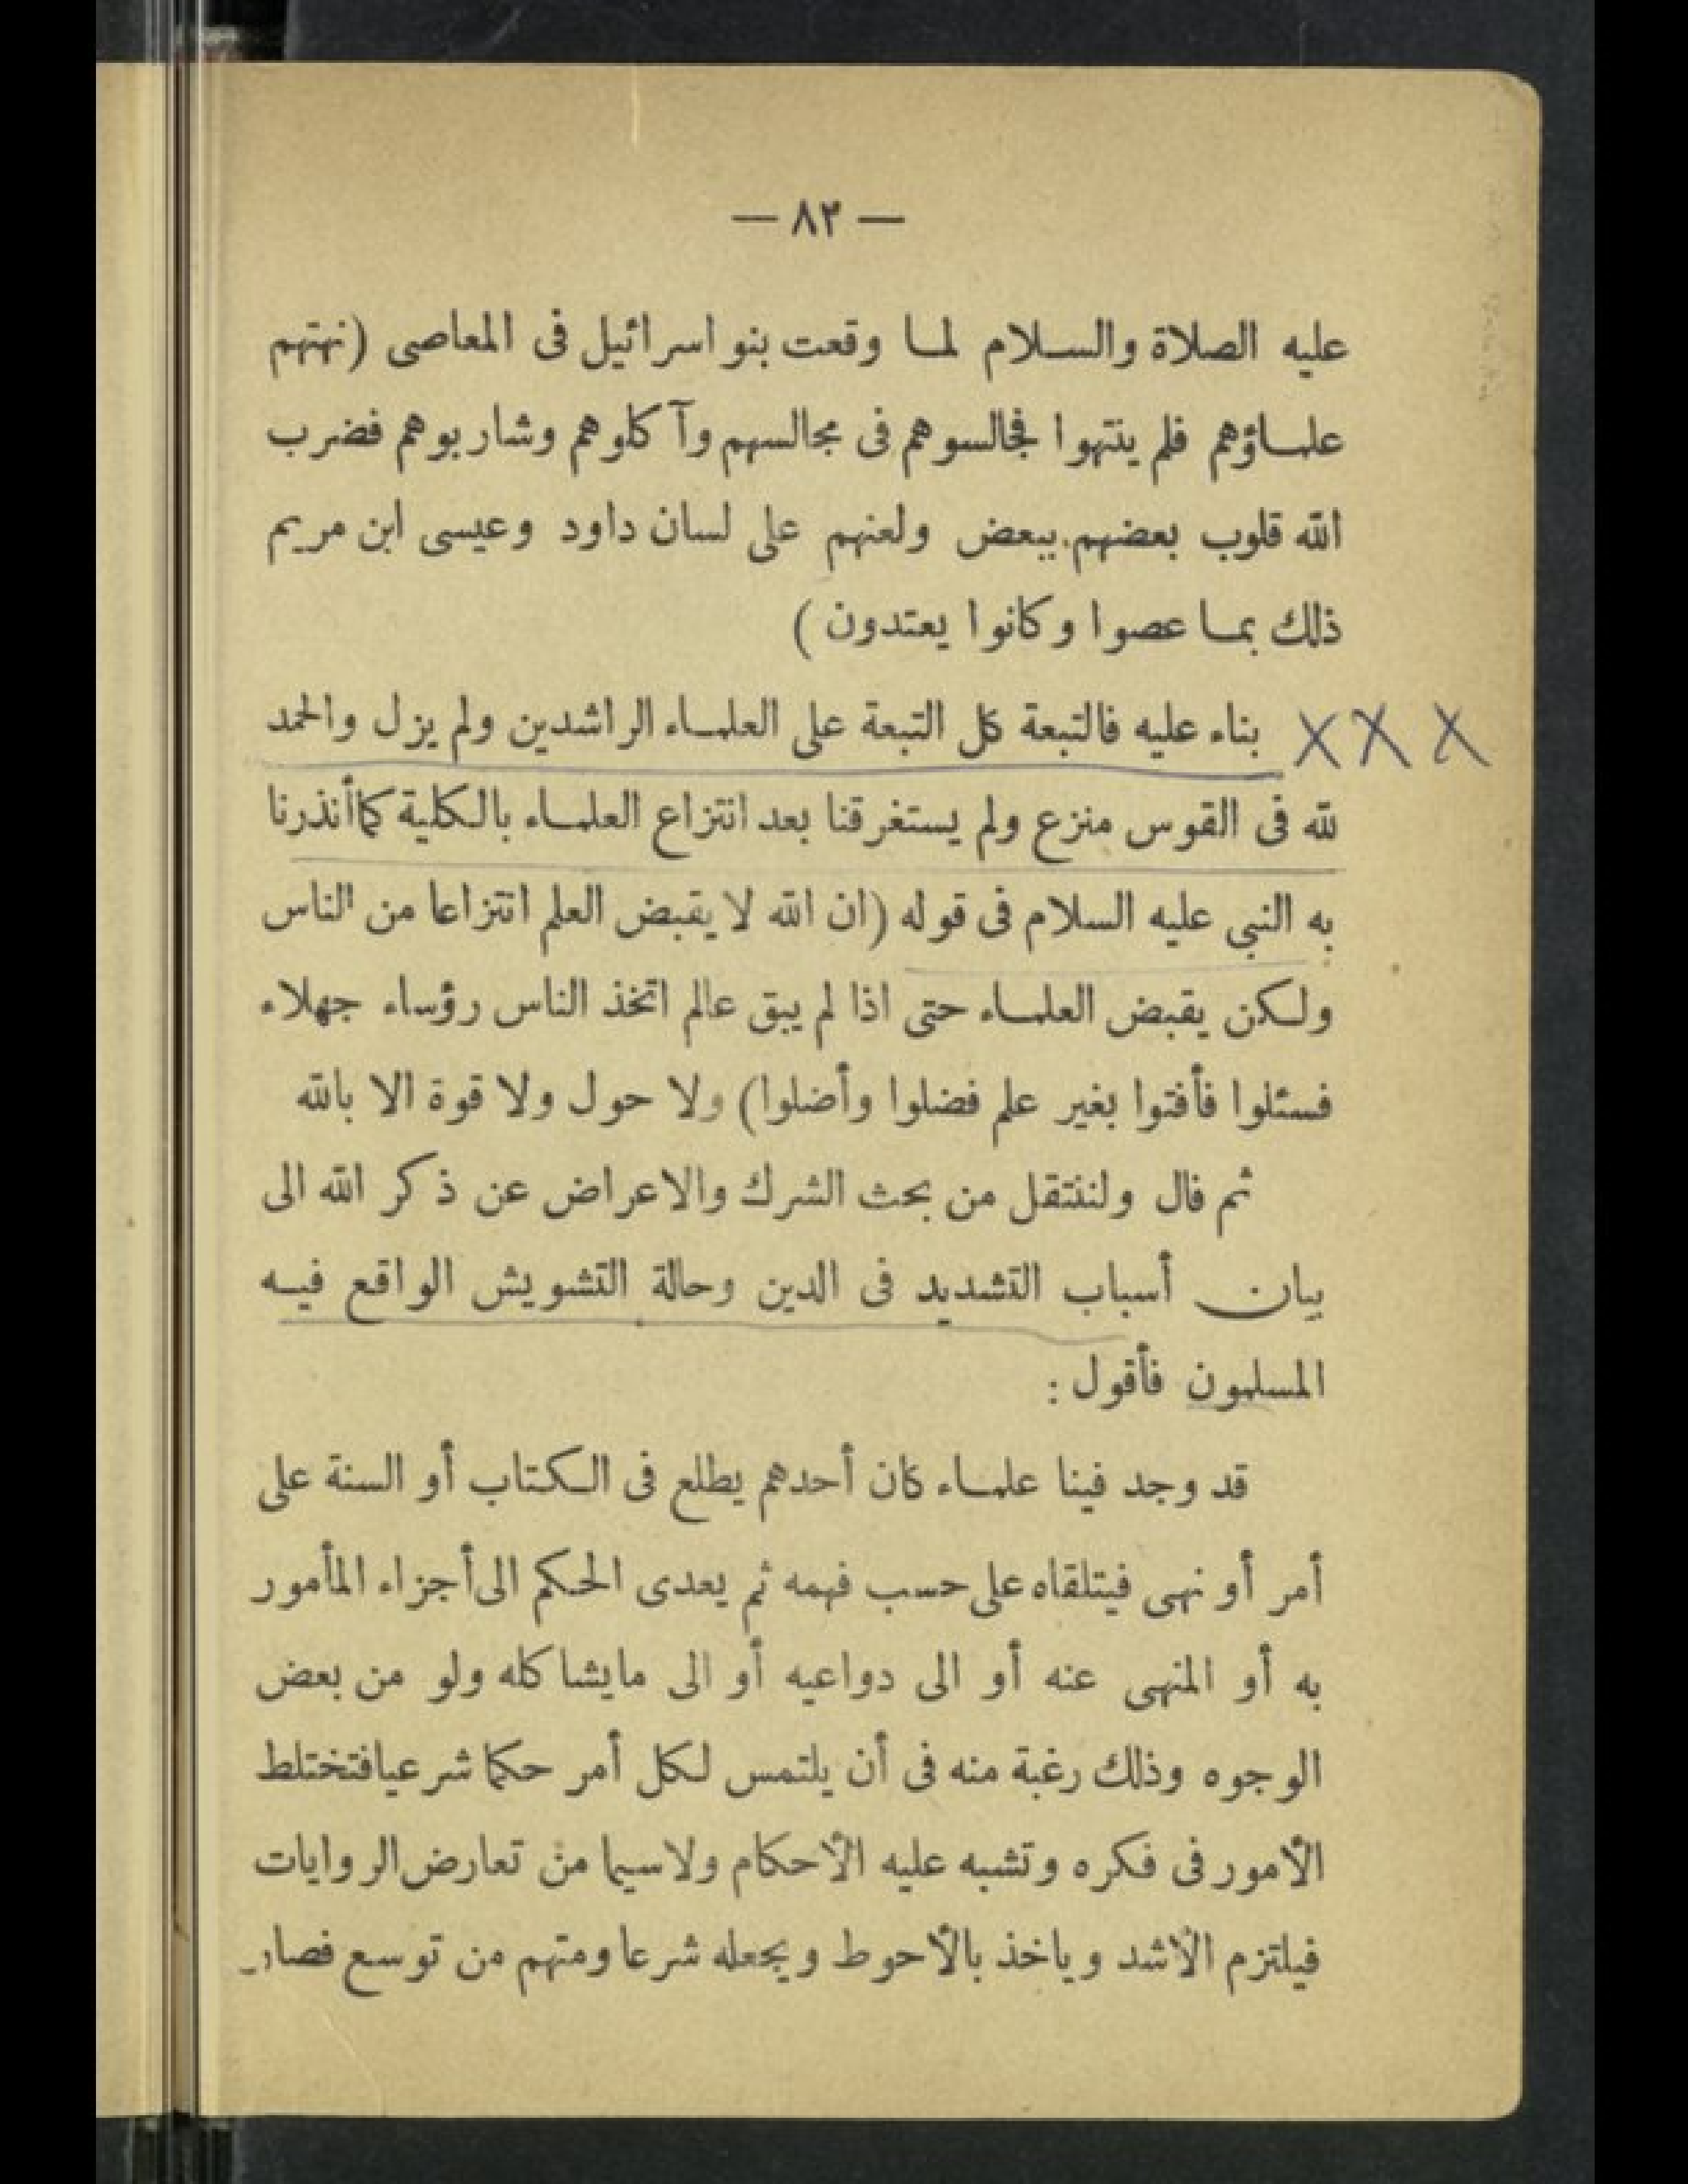 — ٨٢ —
عليه الصلاة والسلام لما وقعت بنو اسرائيل فى المعاصى (نهتهم
علماؤهم فلم ينتهوا فجالسوهم فى مجالسهم وآ كلوهم وشاربوهم فضرب
الله قلوب بعضهم ببعض ولعنهم على لسان داود وعيسى ابن مريم
ذلك بما عصوا وكانوا يعتدون )
XXX بناء عليه فالتبعة كل التبعة على العلماء الراشدين ولم يزل والحمد
لله فى القوس منزع ولم يستغرقنا بعد انتزاع العلماء بالكلية كما أنذرنا
به النبى عليه السلام فى قوله (ان الله لا يقبض العلم انتزاعا من الناس
ولكن يقبض العلماء حتى اذا لم يبق عالم اتخذ الناس رؤساء جهلاء
فسئلوا فأفتوا بغير علم فضلوا وأضلوا) ولا حول ولا قوة الا بالله
ثم قال ولننتقل من بحث الشرك والاعراض عن ذكر الله الى
بيان أسباب التشديد فى الدين وحالة التشويش الواقع فيه
المسلمون فأقول :
قد وجد فينا علماء كان أحدهم يطلع فى الكتاب أو السنة على
أمر أو نهى فيتلقاه على حسب فهمه ثم يعدى الحكم الى أجزاء المأمور
به أو المنهى عنه أو الى دواعيه أو الى مايشاكله ولو من بعض
الوجوه وذلك رغبة منه فى أن يلتمس لكل أمر حكما شرعيا فتختلط
الأمور فى فكره وتشبه عليه الأحكام ولاسيما من تعارض الروايات
فيلتزم الأشد وياخذ بالأحوط ويجعله شرعا ومنهم من توسع فصار